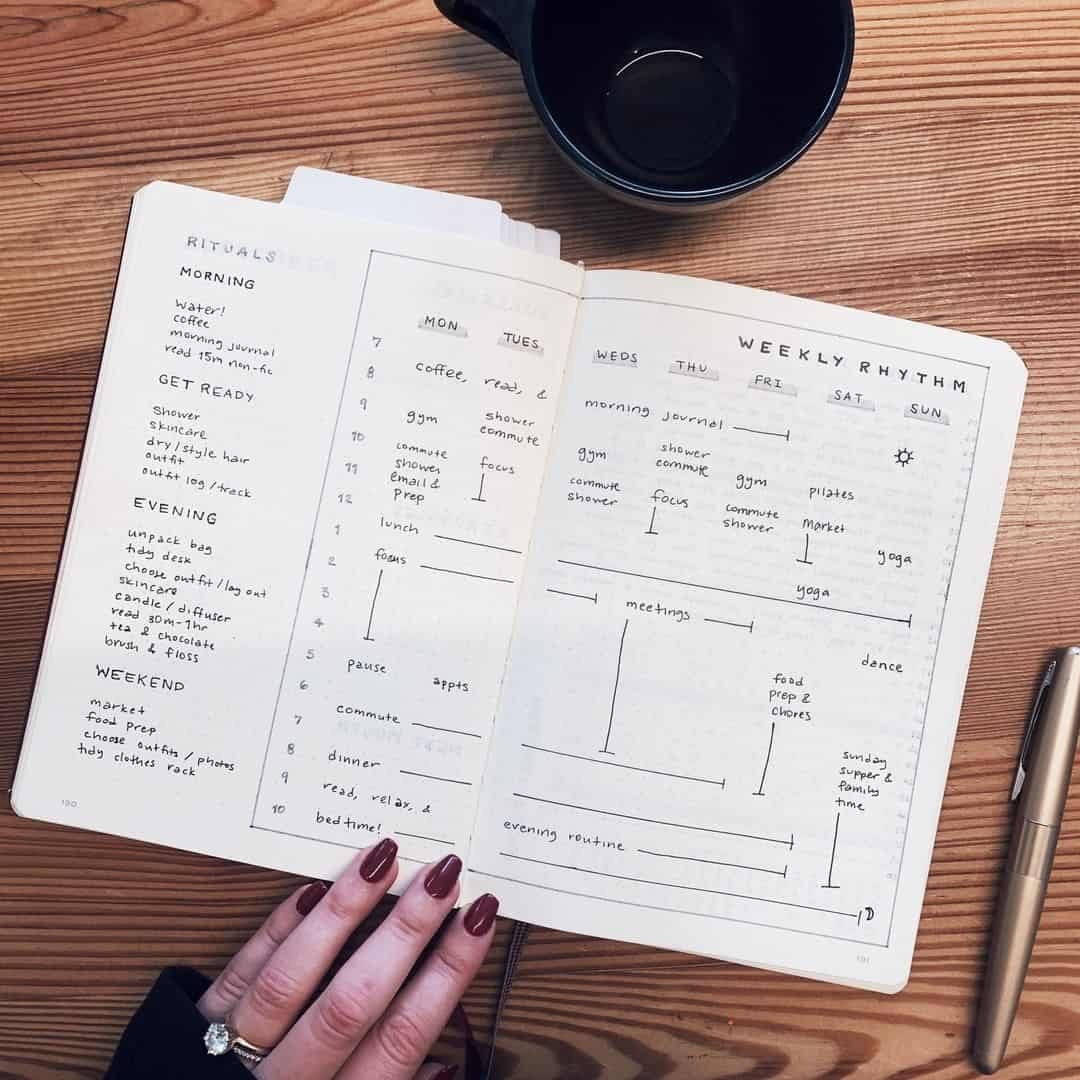 RITUALS
MORNING
water!
coffee
morning journal
read 15m non-fic
GET READY
shower
skincare
dry/style hair
outfit
outfit log/track
EVENING
unpack bag
tidy desk
choose outfit/lay out
skincare
candle/diffuser
read 30m-1hr
tea & chocolate
brush & floss
WEEKEND
market
food prep
choose outfits/photos
tidy clothes rack
190
WEEKLY RHYTHM
MON TUES WEDS THU FRI SAT SUN
7
8 coffee, read, & morning journal
9 gym shower gym shower gym pilates
commute commute
10 commute focus commute focus commute market
shower shower shower
11 email &
prep yoga
12
1 lunch yoga
2 focus meetings
3
4 dance
5 pause appts food
prep &
chores
6
7 commute sunday
supper &
family
time
8 dinner
9 read, relax, & evening routine
10 bedtime!
191